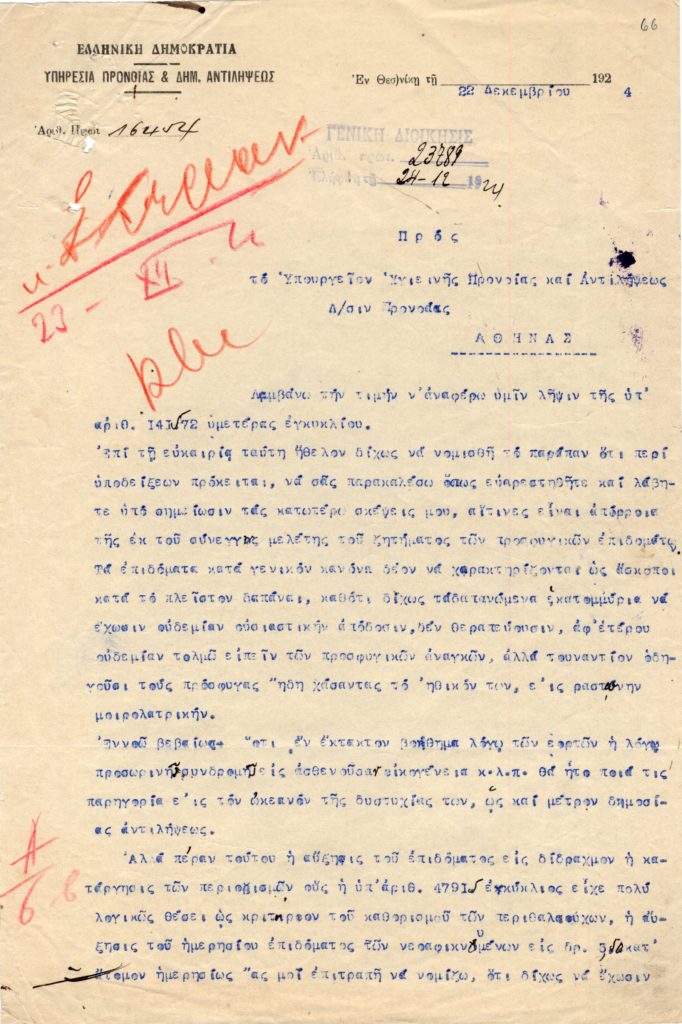 66
ΕΛΛΗΝΙΚΗ ΔΗΜΟΚΡΑΤΙΑ
ΥΠΗΡΕΣΙΑ ΠΡΟΝΟΙΑΣ & ΔΗΜ. ΑΝΤΙΛΗΨΕΩΣ
Ἐν Θεσ)νίκῃ τῇ 22 Δεκεμβρίου 1924
Ἀριθ. Πρωτ. 16454
ΓΕΝΙΚΗ ΔΙΟΙΚΗΣΙΣ
Ἀριθ. πρωτ. 23789
24-12 1924
23 - XII
Πρός
τό Ὑπουργεῖον Ὑγιεινῆς Προνοίας καί Αντιλήψεως
Δ/σιν Προνοίας
ΑΘΗΝΑΣ
Λαμβάνω τήν τιμήν ν'ἀναφέρω ὑμῖν λῆψιν τῆς ὑπ'
ἀριθ. 141572 ὑμετέρας ἐγκυκλίου.
Ἐπί τῇ εὐκαιρίᾳ ταύτῃ ἤθελον δίχως νά νομισθῇ τό παράπαν ὅτι περί
ὑποδείξεων πρόκειται, νά σᾶς παρακαλέσω ὅπως εὐαρεστηθῆτε καί λάβη-
τε ὑπό σημείωσιν τάς κατωτέρω σκέψεις μου, αἵτινες εἶναι ἀπόρροια
τῆς ἐκ τοῦ σύνεγγυς μελέτης τοῦ ζητήματος τῶν προσφυγικῶν ἐπιδομάτων.
Τά ἐπιδόματα κατά γενικόν κανόνα δέον νά χαρακτηρίζονται ὡς ἄσκοποι
κατά τό πλεῖστον δαπάναι, καθότι δίχως τάδαπανώμενα ἑκατομμύρια νά
ἔχωσιν οὐδεμίαν οὐσιαστικήν ἀπόδοσιν,δέν θεραπεύουσιν, ἀφ'ἑτέρου
οὐδεμίαν τολμῶ εἰπεῖν τῶν προσφυγικῶν ἀναγκῶν, ἀλλά τοὐναντίον ὁδη-
γοῦσι τούς πρόσφυγας "ηδη χάσαντας τό ἠθικόν των, ε'ις ραστώνην
μοιρολατρικήν.
Ἐννοῶ βεβαίως "οτι ἕν ἔκτακτον βοήθημα λόγῳ τῶν ἑορτῶν ἤ λόγῳ
προσωρινῆς συνδρομῆς εἰς ἀσθενοῦσαν οἰκογένεια κ.λ.π. θά ἦτο ποιά τις
παρηγορία ε'ις τόν ὠκεανόν τῆς δυστυχίας των, ὡς καί μέτρον δημοσί-
ας ἀντιλήψεως.
Ἀλλά πέραν τούτου ἡ αὔξησις τοῦ ἐπιδόματος εἰς δίδραχμον ἡ κα-
τάργησις τῶν περιορισμῶν οὕς ἡ ὑπ'ἀριθ. 47915 ἐγκύκλιος εἶχε πολύ
λογικῶς θέσει ὡς κριτήριον τοῦ καθορισμοῦ τῶν περιθαλπούχων, ἡ αὔ-
ξησις τοῦ ἡμερησίου ἐπιδόματος τῶν νεοαφικνουμένων εἰς δρ. 5,50 κατ'
ἄτομον ἡμερησίως "ας μοί ἐπιτραπῇ νά νομίζω, ὅτι δίχως νά ἔχωσιν
Α/6